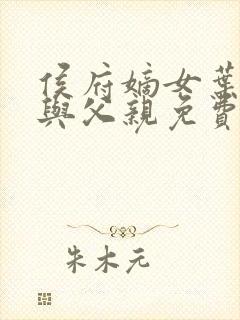 侯府嫡女葉
與父親免費
朱木元